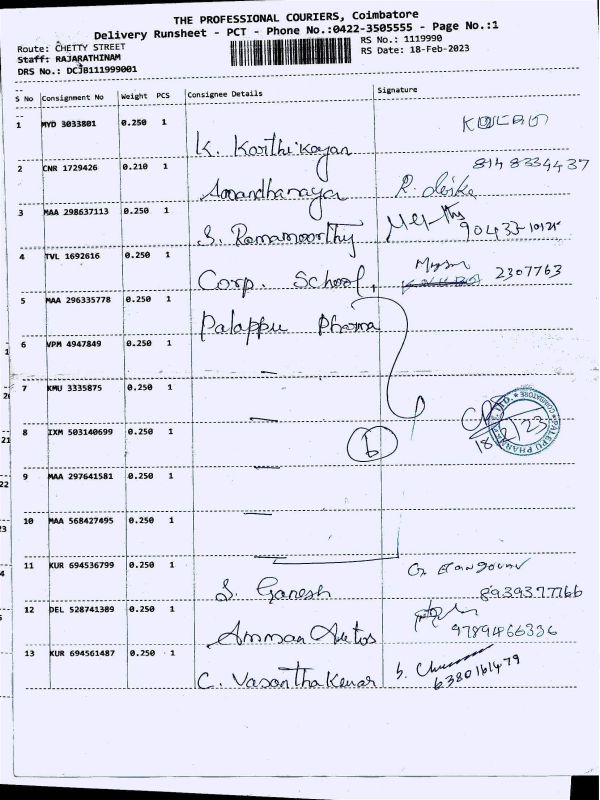 THE PROFESSIONAL COURIERS, Coimbatore
Delivery Runsheet - PCT - Phone No.:0422-3505555 - Page No.:1
Route: CHETTY STREET
RS No.: 1119990
Staff: RAJARATHINAM
RS Date: 18-Feb-2023
DRS No.: DCJB111999001
S No Consignment No Weight PCS Consignee Details Signature
1 MYD 3033801 0.250 1
K. Karthikayan
2 CNR 1729426 0.210 1 8148334437
Anandhanagar R.
3 MAA 298637113 0.250 1
S. Ramamoorthy 90433-10125
4 TVL 1692616 0.250 1
Corp. School, 2307763
5 MAA 296335778 0.250 1
Palappu Pharma
6 VPM 4947849 0.250 1
7 KMU 3335875 0.250 1
8 IXM 503140699 0.250 1
6
18/2/23
9 MAA 297641581 0.250 1
10 MAA 568427495 0.250 1
11 KUR 694536799 0.250 1
S. Ganesh 8939377766
12 DEL 528741389 0.250 1
Amman Autos 9789466336
13 KUR 694561487 0.250 1
C. Vasanthakumar 6380161479